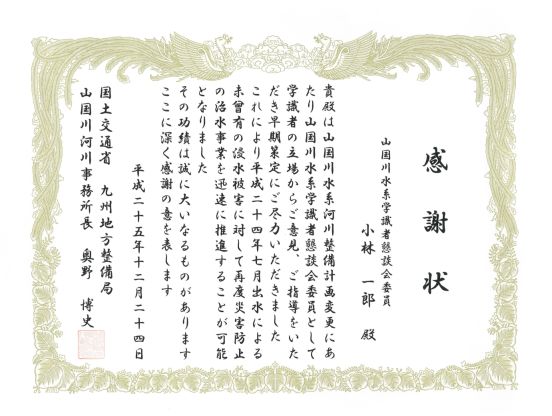 感謝状
山国川水系学識者懇談会委員
小林 一郎 殿
貴殿は山国川水系河川整備計画変更にあ
たり山国川水系学識者懇談会委員として
学識者の立場からご意見、ご指導をいた
だき早期策定にご尽力いただきました
これにより平成二十四年七月出水による
未曾有の浸水被害に対して再度災害防止
の治水事業を迅速に推進することが可能
となりました
その功績は誠に大いなるものがあります
ここに深く感謝の意を表します
平成二十五年十二月二十四日
国土交通省 九州地方整備局
山国川河川事務所長 奥野 博史